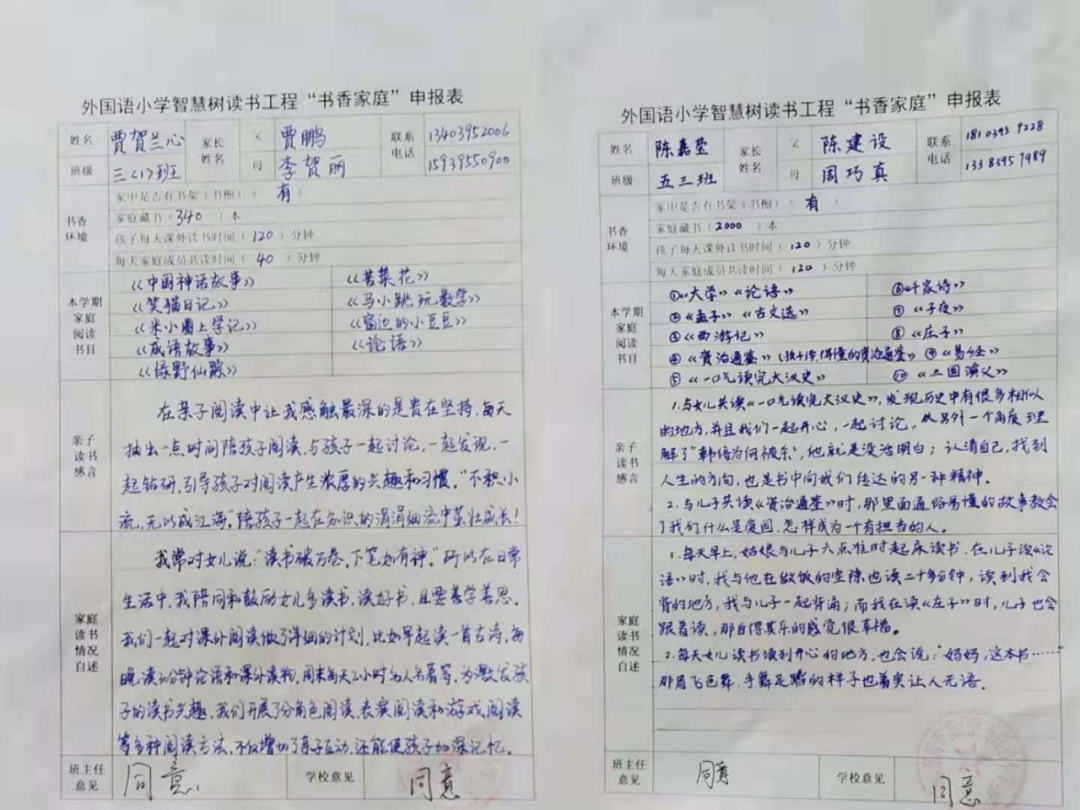 外国语小学智慧树读书工程“书香家庭”申报表
姓名 贾贺兰心 家长姓名 父 贾鹏 联系电话 13403952006
班级 三(1)班 母 李贺丽 15939550900
书香环境
家中是否有书架(书橱)( 有 )
家庭藏书( 340 )本
孩子每天课外读书时间( 120 )分钟
每天家庭成员共读时间( 40 )分钟
本学期家庭阅读书目
《中国神话故事》 《苦菜花》
《笑猫日记》 《马小跳玩数学》
《米小圈上学记》 《窗边的小豆豆》
《成语故事》 《论语》
《绿野仙踪》
亲子读书感言
在亲子阅读中让我感触最深的是贵在坚持,每天
抽出一点时间陪孩子阅读,与孩子一起讨论,一起发现,一
起钻研,引导孩子对阅读产生浓厚的兴趣和习惯。“不积小
流,无以成江海”陪孩子一起在知识的涓涓细流中茁壮成长!
家庭读书情况自述
我常对女儿说:“读书破万卷,下笔如有神”所以在日常
生活中,我陪同和鼓励女儿多读书,读好书,且要善学善思。
我们一起对课外阅读做了详细的计划,比如早起读一首古诗,每
晚读 分钟论语和课外读物,周末每天2小时 名著等,为激发孩
子的读书兴趣,我们开展了分角色阅读、表演阅读和游戏阅读
等多种阅读方法,不仅增加了亲子互动,还能使孩子加深记忆。
班主任意见 同意 学校意见 同意
外国语小学智慧树读书工程“书香家庭”申报表
姓名 陈嘉莹 家长姓名 父 陈建设 联系电话
班级 五三班 母 周巧真 13383957989
书香环境
家中是否有书架(书橱)( 有 )
家庭藏书( 2000 )本
孩子每天课外读书时间( 120 )分钟
每天家庭成员共读时间( 120 )分钟
本学期家庭阅读书目
①《大学》《论语》 ⑥《千家诗》
②《孟子》《古文选》 ⑦《子夜》
③《西游记》 ⑧《庄子》
④《资治通鉴》(孩子读得懂的资治通鉴) ⑨《易经》
⑤《一口气读完大汉史》 ⑩《三国演义》
亲子读书感言
1.与女儿共读《一口气读完大汉史》,发现历史中有很多相似
的地方,并且我们一起开心,一起讨论,从另外一个角度理
解了“韩信为何被杀”,他就是没活明白;认清自己,找到
人生的方向,也是书中向我们传达的另一种精神。
2.与儿子共读《资治通鉴》时,那里面通俗易懂的故事教会
了我们什么是爱国,怎样成为一个有担当的人。
家庭读书情况自述
1.每天早上,姑娘与儿子六点准时起床读书,在儿子读《论
语》时,我与他在做饭的空隙也读二十多分钟,读到我会
背的地方,我与儿子一起背诵;而我在读《庄子》时,儿子也会
跟着读,那自得其乐的感觉很幸福。
2.每天女儿读书读到开心的地方,也会说:“妈妈,这本书……
那眉飞色舞、手舞足蹈的样子也着实让人无语。
班主任意见 同意 学校意见 同意